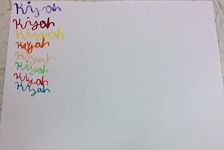 Kiyah
Kiyah
Kiyah
Kiyah
Kiyah
Kiyah
Kiyah
Kiyah